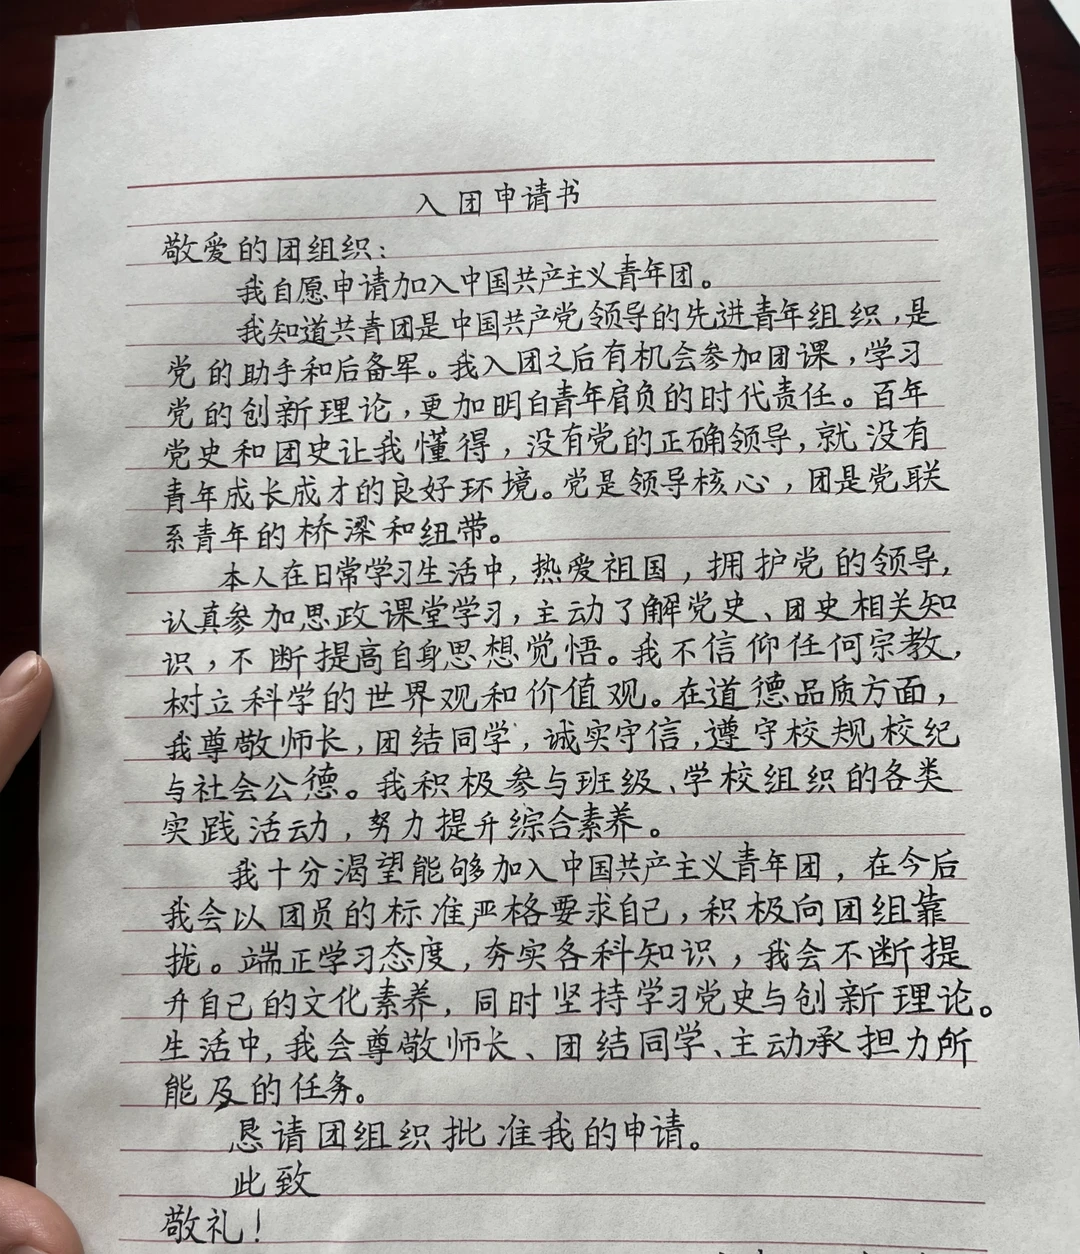 入团申请书
敬爱的团组织:
我自愿申请加入中国共产主义青年团。
我知道共青团是中国共产党领导的先进青年组织,是
党的助手和后备军。我入团之后有机会参加团课,学习
党的创新理论,更加明白青年肩负的时代责任。百年
党史和团史让我懂得,没有党的正确领导,就没有
青年成长成才的良好环境。党是领导核心,团是党联
系青年的桥梁和纽带。
本人在日常学习生活中,热爱祖国,拥护党的领导,
认真参加思政课堂学习,主动了解党史、团史相关知
识,不断提高自身思想觉悟。我不信仰任何宗教,
树立科学的世界观和价值观。在道德品质方面,
我尊敬师长,团结同学,诚实守信,遵守校规校纪
与社会公德。我积极参与班级、学校组织的各类
实践活动,努力提升综合素养。
我十分渴望能够加入中国共产主义青年团,在今后
我会以团员的标准严格要求自己,积极向团组靠
拢。端正学习态度,夯实各科知识,我会不断提
升自己的文化素养,同时坚持学习党史与创新理论。
生活中,我会尊敬师长、团结同学、主动承担力所
能及的任务。
恳请团组织批准我的申请。
此致
敬礼!